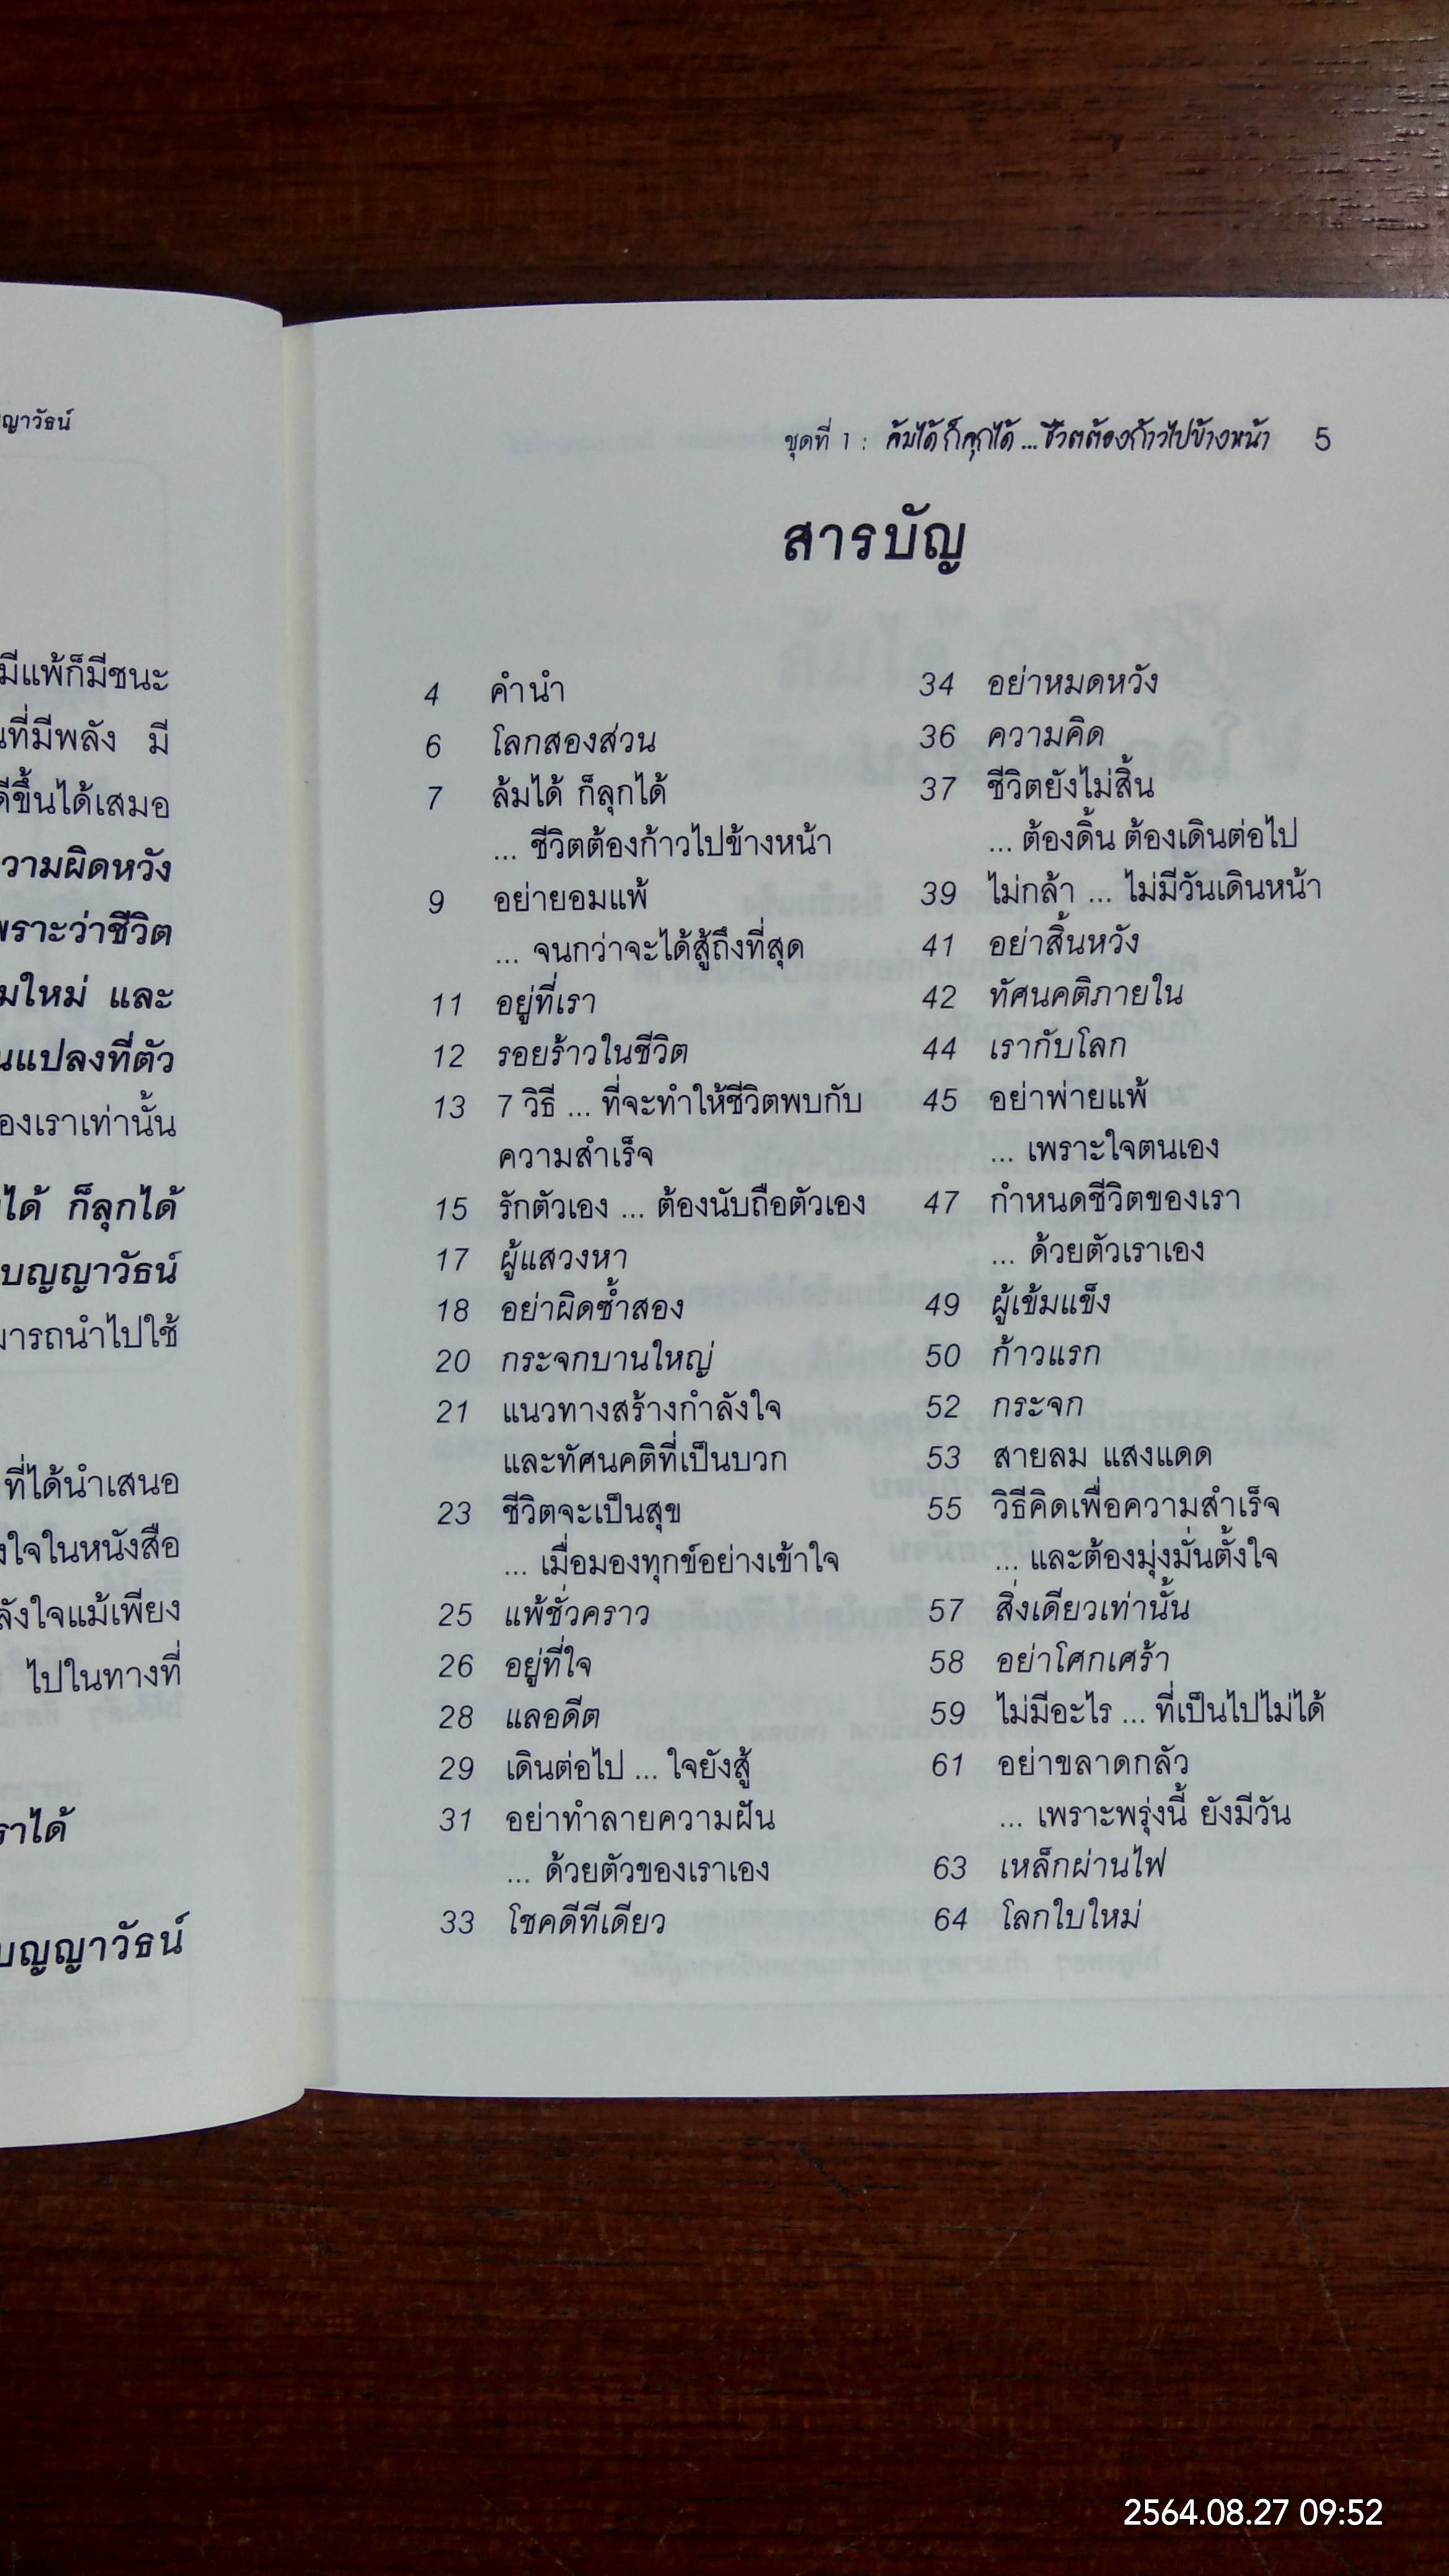 ญาวัธน์
มีแพ้ก็มีชนะ
ที่มีพลัง มี
ดีขึ้นได้เสมอ
วามผิดหวัง
พราะว่าชีวิต
มใหม่ และ
นแปลงที่ตัว
องเราเท่านั้น
ได้ ก็ลุกได้
บญญาวัธน์
มารถนำไปใช้
ที่ได้นำเสนอ
งใจในหนังสือ
ลังใจแม้เพียง
ไปในทางที่
ราได้
บญญาวัธน์
ชุดที่ 1 : ล้มได้ ก็ลุกได้ ... ชีวิตต้องก้าวไปข้างหน้า 5
สารบัญ
4 คำนำ
6 โลกสองส่วน
7 ล้มได้ ก็ลุกได้
... ชีวิตต้องก้าวไปข้างหน้า
9 อย่ายอมแพ้
... จนกว่าจะได้สู้ถึงที่สุด
11 อยู่ที่เรา
12 รอยร้าวในชีวิต
13 7 วิธี ... ที่จะทำให้ชีวิตพบกับ
ความสำเร็จ
15 รักตัวเอง ... ต้องนับถือตัวเอง
17 ผู้แสวงหา
18 อย่าผิดซ้ำสอง
20 กระจกบานใหญ่
21 แนวทางสร้างกำลังใจ
และทัศนคติที่เป็นบวก
23 ชีวิตจะเป็นสุข
... เมื่อมองทุกข์อย่างเข้าใจ
25 แพ้ชั่วคราว
26 อยู่ที่ใจ
28 แลอดีต
29 เดินต่อไป ... ใจยังสู้
31 อย่าทำลายความฝัน
... ด้วยตัวของเราเอง
33 โชคดีทีเดียว
34 อย่าหมดหวัง
36 ความคิด
37 ชีวิตยังไม่สิ้น
... ต้องดิ้น ต้องเดินต่อไป
39 ไม่กล้า ... ไม่มีวันเดินหน้า
41 อย่าสิ้นหวัง
42 ทัศนคติภายใน
44 เรากับโลก
45 อย่าพ่ายแพ้
... เพราะใจตนเอง
47 กำหนดชีวิตของเรา
... ด้วยตัวเราเอง
49 ผู้เข้มแข็ง
50 ก้าวแรก
52 กระจก
53 สายลม แสงแดด
55 วิธีคิดเพื่อความสำเร็จ
... และต้องมุ่งมั่นตั้งใจ
57 สิ่งเดียวเท่านั้น
58 อย่าโศกเศร้า
59 ไม่มีอะไร ... ที่เป็นไปไม่ได้
61 อย่าขลาดกลัว
... เพราะพรุ่งนี้ ยังมีวัน
63 เหล็กผ่านไฟ
64 โลกใบใหม่
2564.08.27 09:52